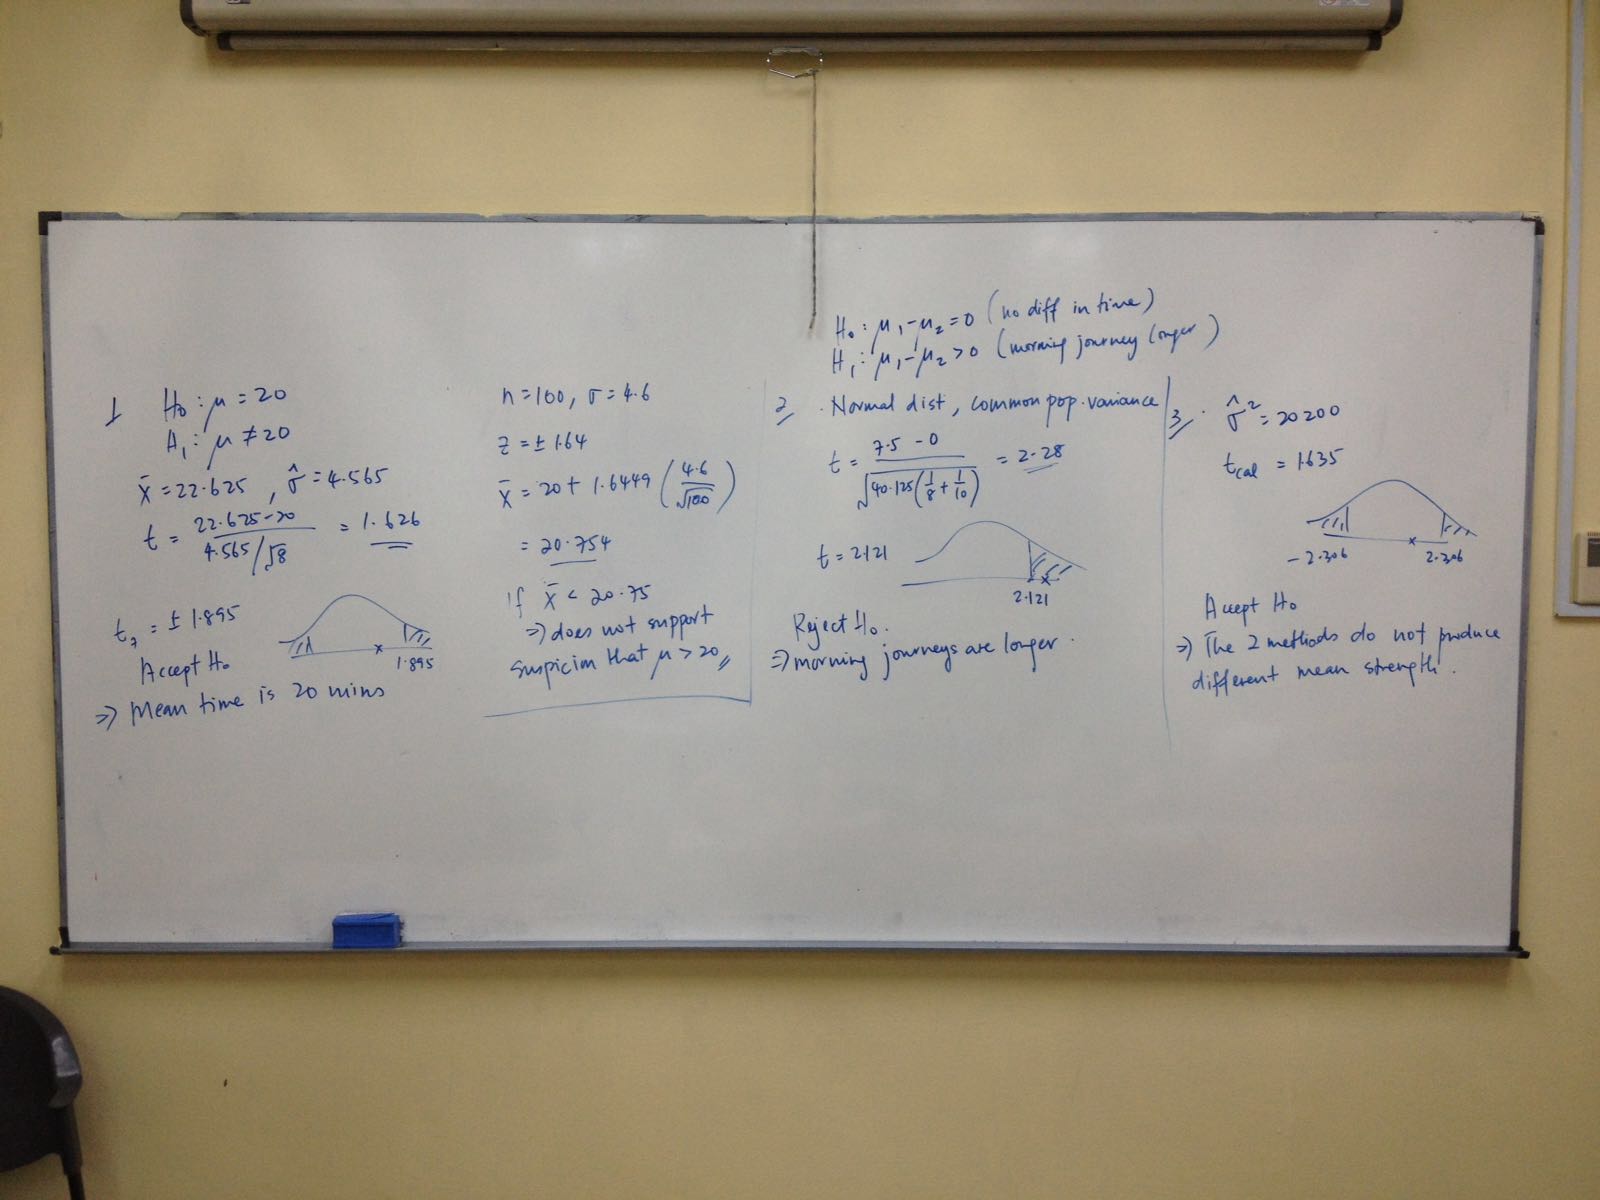 1 H₀ : μ = 20
H₁ : μ ≠ 20
x̄ = 22.625 , σ̂ = 4.565
t = (22.625 - 20) / (4.565/√8) = 1.626
t₇ = ± 1.895
1.895
Accept H₀
⇒ Mean time is 20 mins
n = 100, σ = 4.6
z = ± 1.64
x̄ = 20 + 1.6449 (4.6/√100)
= 20.754
if x̄ < 20.75
⇒ does not support
suspicion that μ > 20
H₀ : μ₁ - μ₂ = 0 (no diff in time)
H₁ : μ₁ - μ₂ > 0 (morning journey longer)
2 . Normal dist, common pop. variance
t = (7.5 - 0) / √(40.125(1/8 + 1/10)) = 2.28
t = 2.121
2.121
Reject H₀.
⇒ morning journeys are longer.
3 . σ̂² = 20200
tcal = 1.635
-2.306 2.306
Accept H₀
⇒ The 2 methods do not produce
different mean strength.